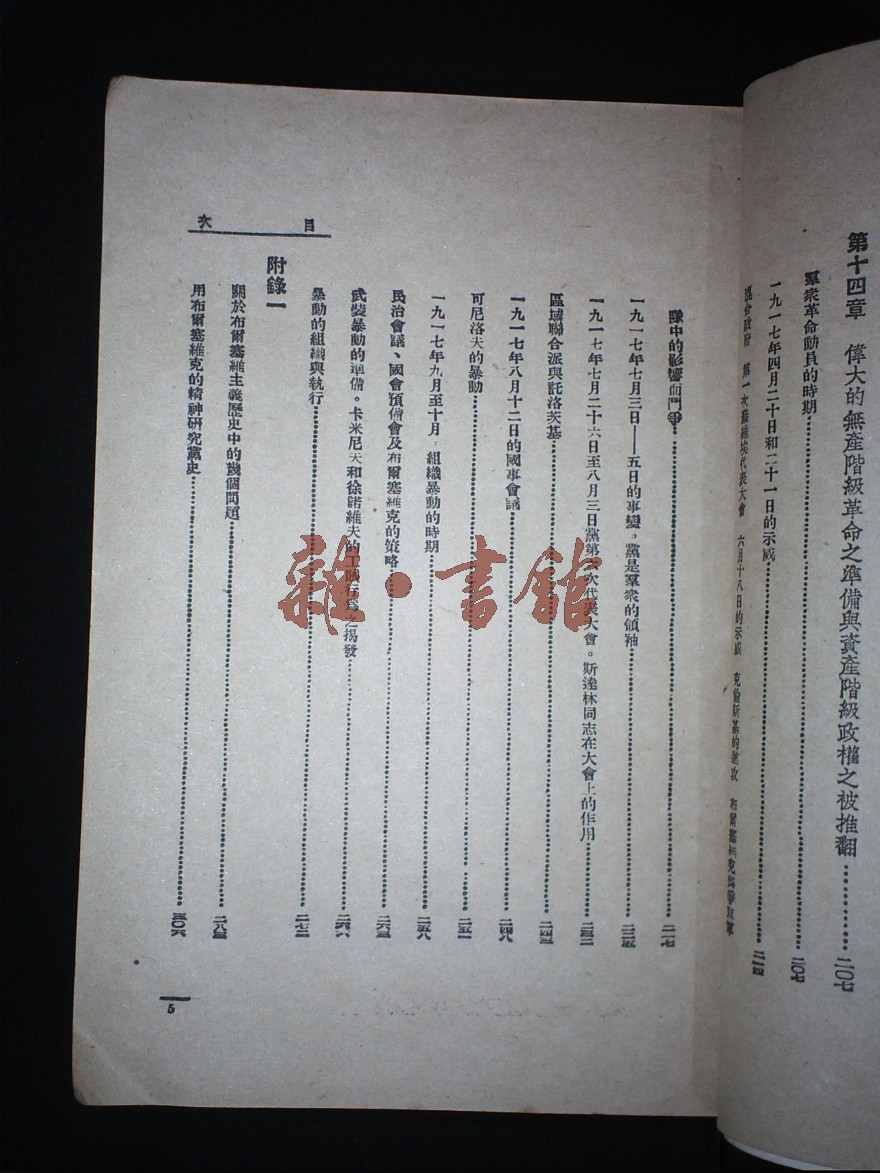 第十四章　偉大的無產階級革命之準備與資產階級政權之被推翻…………二〇七
羣衆革命動員的時期…………二〇七
一九一七年四月二十日和二十一日的示威…………二一四
混合政府　第一次蘇維埃代表大會　六月十八日的示威　克倫斯基的進攻　布爾塞維克爲爭取軍
目次
隊中的影響而鬥爭…………二一七
一九一七年七月三日——五日的事變，黨是羣衆的領袖…………
一九一七年七月二十六日至八月三日黨第六次代表大會。斯達林同志在大會上的作用…………
區域聯合派與託洛茨基…………
一九一七年八月十二日的國事會議…………二四八
可尼洛夫的暴動…………二五一
一九一七年九月至十月，組織暴動的時期…………二五八
民治會議、國會預備會及布爾塞維克的策略…………
武裝暴動的準備。卡米尼夫和徐諾維夫的工賊行爲之揚發…………
暴動的組織與執行…………
附錄一
關於布爾塞維主義歷史中的幾個問題…………
用布爾塞維克的精神研究黨史…………三〇六
5
雜·書館